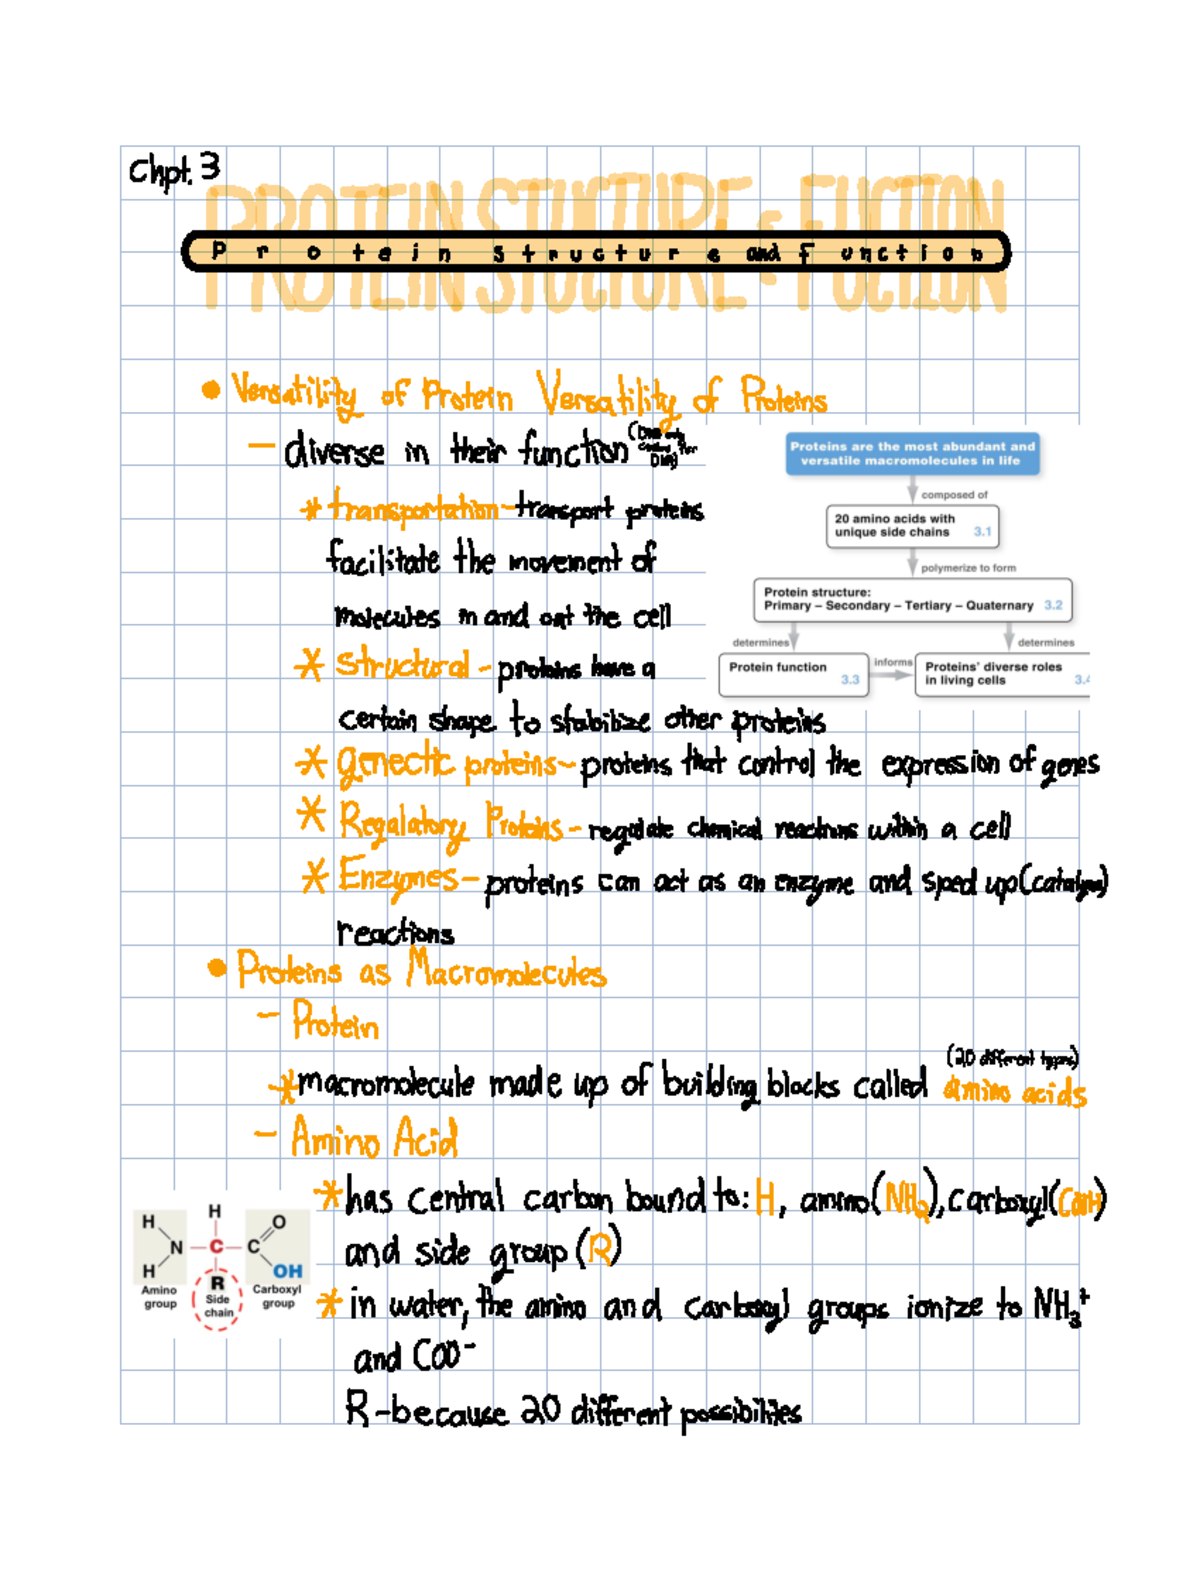 Chpt. 3
PROTEIN STUCTURE & FUCTION
Protein Structure and Function
• Versatility of Protein Versatility of Proteins
- diverse in their function
* transportation - transport proteins
facilitate the movement of
molecules in and out the cell
* Structural - proteins have a
certain shape to stabibize other proteins
* genectic proteins - proteins that control the expression of genes
* Regalatory Proteins - regulate chemical reactions within a cell
* Enzymes - proteins can act as an enzyme and sped up (catalyze)
reactions
Proteins are the most abundant and
versatile macromolecules in life
composed of
20 amino acids with
unique side chains 3.1
polymerize to form
Protein structure:
Primary – Secondary – Tertiary – Quaternary 3.2
determines determines
Protein function 3.3
informs
Proteins' diverse roles
in living cells 3.4
• Proteins as Macromolecules
- Protein
(20 different types)
* macromolecule made up of building blocks called amino acids
- Amino Acid
* has central carbon bound to: H, amino (NH₂), carboxyl (COOH)
and side group (R)
* in water, the amino and carboxyl groups ionize to NH₃⁺
and COO⁻
R - because 20 different possibilities
H
H
N
H
C
R
C
O
OH
Amino
group
Side
chain
Carboxyl
group